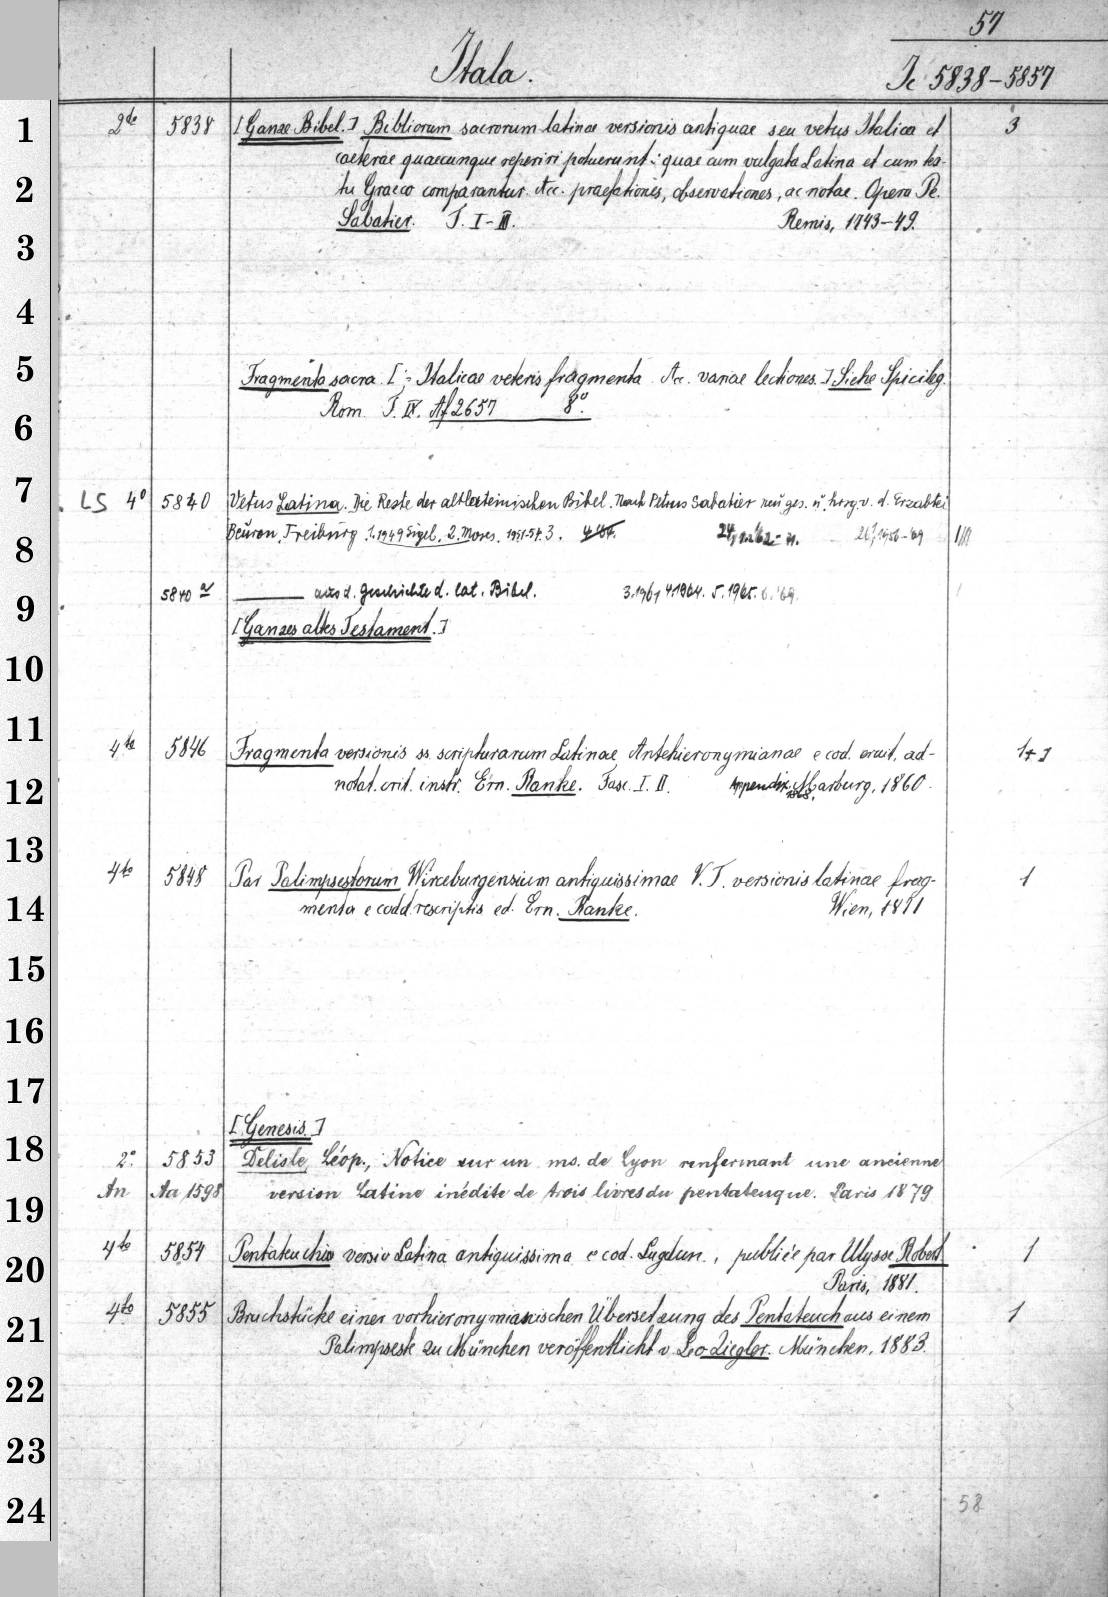 57
Itala.
Ic 5838-5857
1
2to 5838 [Ganze Bibel.] Bibliorum sacrorum latinae versionis antiquae seu vetus Italica et 3
caeterae quaecunque reperiri potuerunt: quae cum vulgata Latina et cum tex-
2
tu Graeco comparantur. Acc. praefationes, observationes, ac notae. Opera Pe.
Sabatier. T. I-III. Remis, 1743-49.
3
4
5
Fragmenta sacra [:; Italicae veteris fragmenta. Acc. variae lectiones.] Siehe Spicileg.
Rom. T. IX. Af 2657 8°.
6
7
LS 4° 5840 Vetus Latina. Die Reste der altlateinischen Bibel. Nach Petrus Sabatier neu ges. u. hrsg. v. d. Erzabtei
Beuron. Freiburg. 1. 1949 Sigel. 2. Moses. 1951-54. 3.
8
5840 a ——— aus d. Geschichte d. lat. Bibel. 3.1961 4.1964. 5.1965. 6.'69.
9
[Ganzes altes Testament.]
10
11
4to 5846 Fragmenta versionis ss. scripturarum Latinae Antehieronymianae e cod. eruit, ad- 1+1
notat. crit. instr. Ern. Ranke. Fasc. I. II. Appendix. 1868. Marburg, 1860.
12
13
4to 5848 Par Palimpsestorum Wirceburgensium antiquissimae V.T. versionis latinae frag- 1
menta e codd. rescriptis ed. Ern. Ranke. Wien, 1871
14
15
16
17
[Genesis.]
18
2°. 5853 Delisle, Léop., Notice sur un ms. de Lyon renfermant une ancienne
An Aa 1598 version Latine inédite de trois livres du pentateuque. Paris 1879
19
4to 5854 Pentateuchi versio Latina antiquissima e cod. Lugdun., publiée par Ulysse Robert. 1
20
Paris, 1881.
4to 5855 Bruchstücke einer vorhieronymianischen Übersetzung des Pentateuch aus einem 1
21
Palimpseste zu München veröffentlicht v. Leo Ziegler. München, 1883.
22
23
24
58